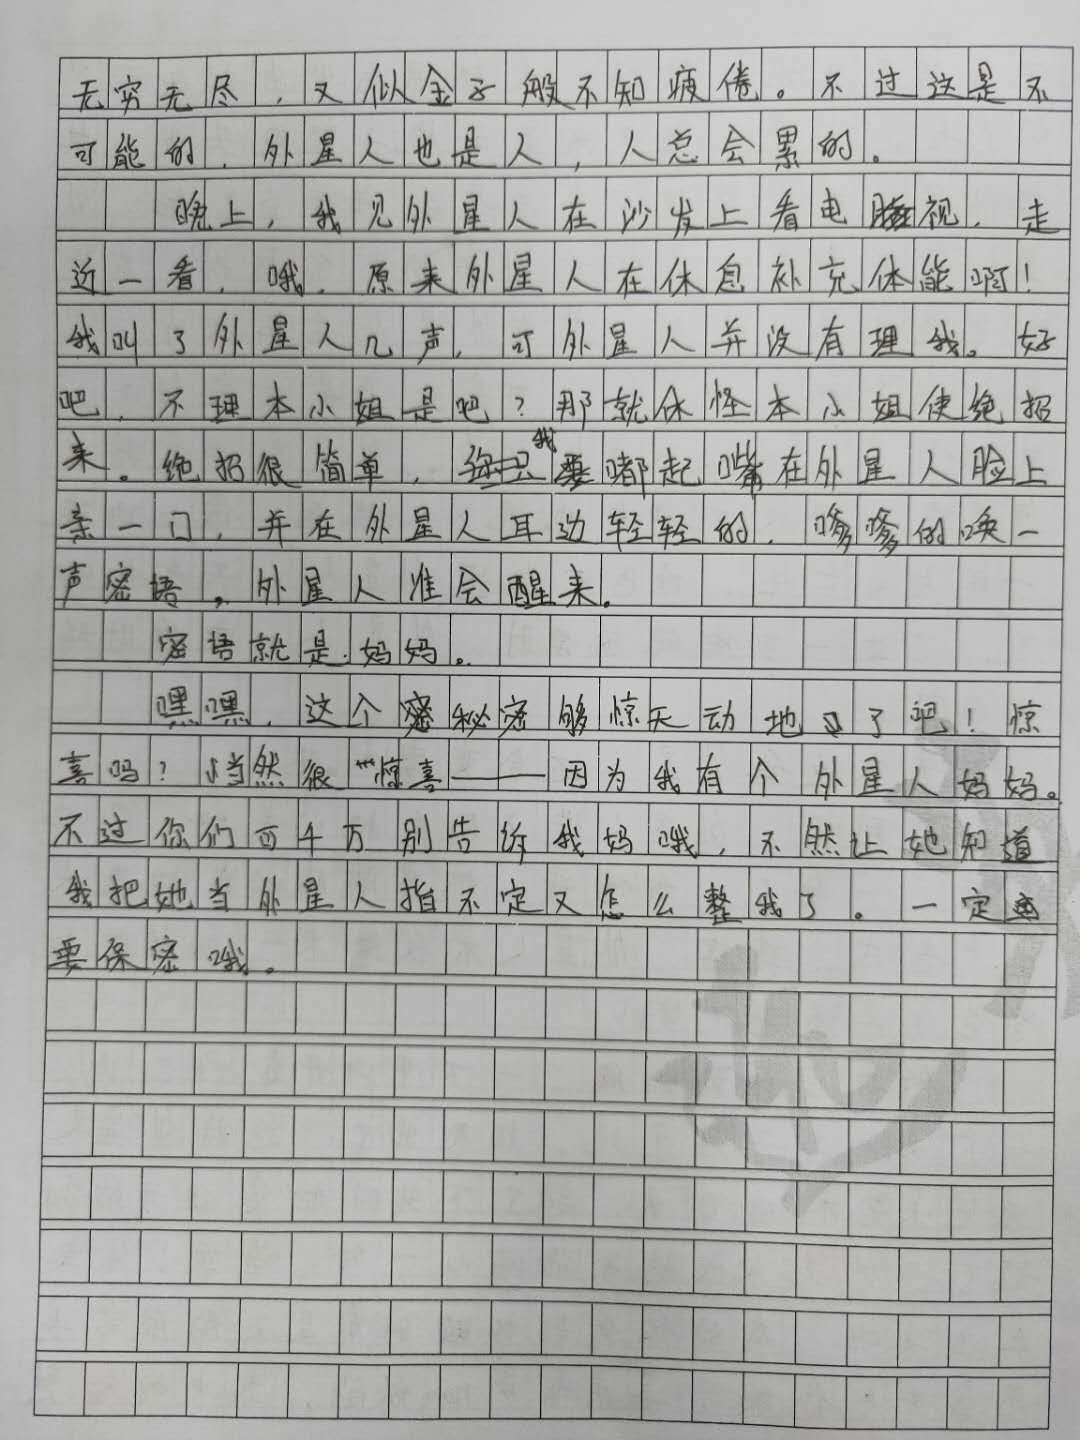 无穷无尽，又似金子般不知疲倦。不过这是不
可能的，外星人也是人，人总会累的。
晚上，我见外星人在沙发上看电视，走
近一看，哦，原来外星人在休息补充体能啊！
我叫了外星人几声，可外星人并没有理我。好
吧，不理本小姐是吧？那就休怪本小姐使绝招
来。绝招很简单，我要嘟起嘴在外星人脸上
亲一口，并在外星人耳边轻轻的，嗲嗲的唤一
声密语。外星人准会醒来。
密语就是：妈妈。
嘿嘿，这个秘密够惊天动地了吧！惊
喜吗？当然很"惊喜——因为我有个外星人妈妈。
不过你们可千万别告诉我妈哦，不然让她知道
我把她当外星人指不定又怎么整我了。一定
要保密哦。